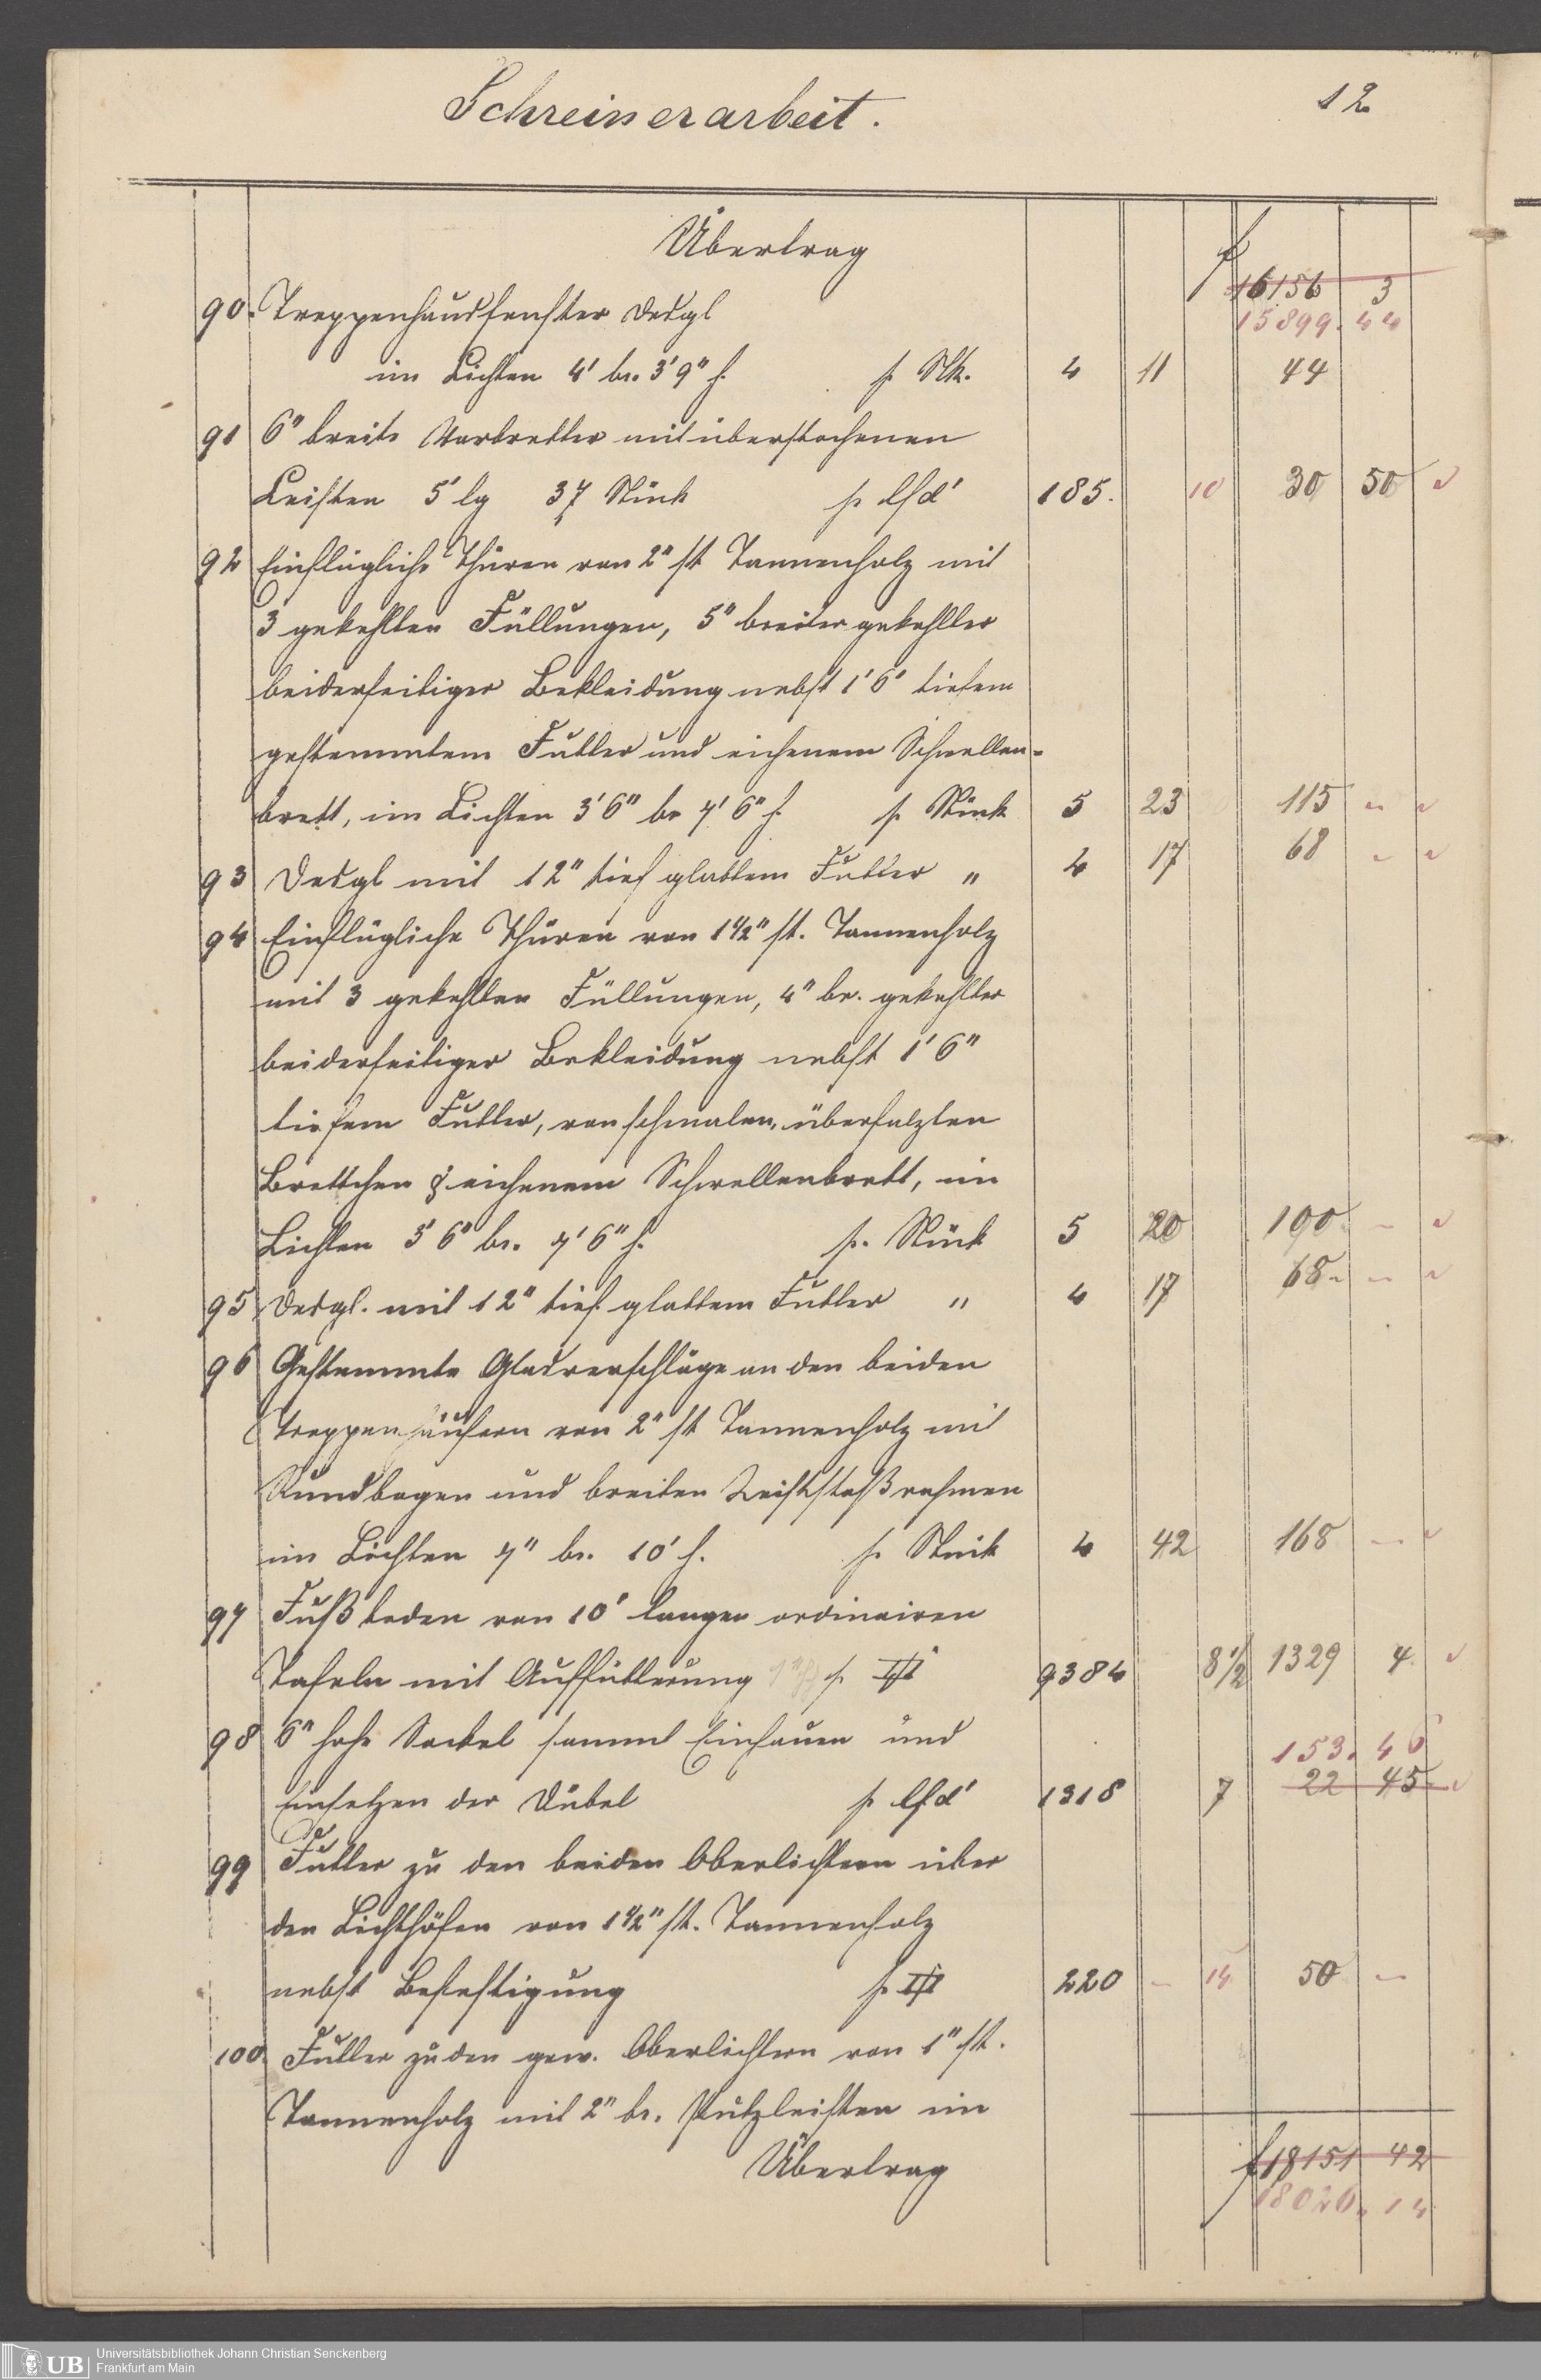 Schreinerarbeit. 12
Übertrag f 16156 3
15899. 44
90. Treppenhausfenster desgl
im Lichten 4' br. 3'9" h. p. Stk. 4 11 44
91 6" breite Vorbretter mit überstochenen
Leisten 5' lg 37 Stück p lfd' 185. 10 30 50
92 Einflügliche Thüren von 2" st Tannenholz mit
3 gekehlten Füllungen, 5" breiter gekehlter
beiderseitiger Bekleidung nebst 1'6" tiefem
gestemmtem Futter und eichenem Schwellen=
brett, im Lichten 3'6" br 7'6" h. p. Stück 5 23 115 -
93 Desgl mit 12" tief glattem Futter " 4 17 68 -
94 Einflügliche Thüren von 1 1/2" st. Tannenholz
mit 3 gekehlten Füllungen, 4" br. gekehlter
beiderseitiger Bekleidung nebst 1'6"
tiefem Futter, von schmalen, überfalzten
Brettchen & eichenem Schwellenbrett, im
Lichten 3'6" br. 7'6" h. p. Stück 5 20 100. -
95 Desgl. mit 12" tief. glattem Futter " 4 17 68 -
96 Gestemmte Glasverschläge an den beiden
Treppenhäusern von 2" st Tannenholz mit
Rundbogen und breiten rahmen
im Lichten 7" br. 10' h. p. Stück 4 42 168 -
97 Fußboden von 10' langen ordinairen
Tafeln mit Auffütterung p. 9384 8 1/2 1329 4
98 6" hohe Sockel sammt Einhauen und 153. 46
Einsetzen der Dübel p lfd' 1318 7 22 45
99 Futter zu den beiden Oberlichtern über
den Lichthöfen von 1 1/2" st. Tannenholz
nebst Befestigung p. 220 - 14 50 -
100. Futter zu den gew. Oberlichtern von 1" st.
Tannenholz mit 2" br. Putzleisten im
Übertrag f 18151 42
18026. 14
UB Universitätsbibliothek Johann Christian Senckenberg
Frankfurt am Main